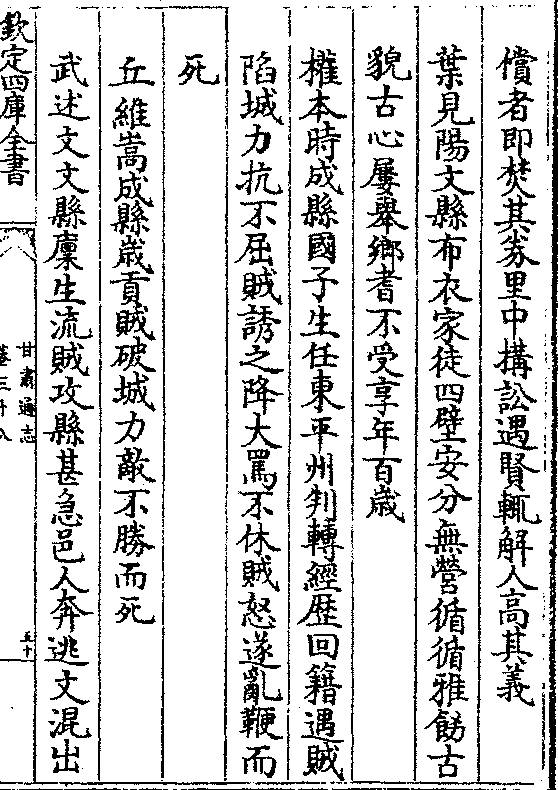 償者即焚其劵里中搆訟遇賢輒解人高其義
葉見陽文縣布衣家徒四壁安分無營循循雅飭古
貌古心屢舉鄉耆不受享年百歲
權本時成縣國子生任東平州判轉經歴回籍遇賊
陷城力抗不屈賊誘之降大罵不休賊怒遂亂鞭而
死
丘維嵩成縣歲貢賊破城力敵不勝而死
武述文文縣廪生流賊攻縣甚急邑人奔逃文混出
欽定四庫全書
甘肅通志
卷三十八
五十